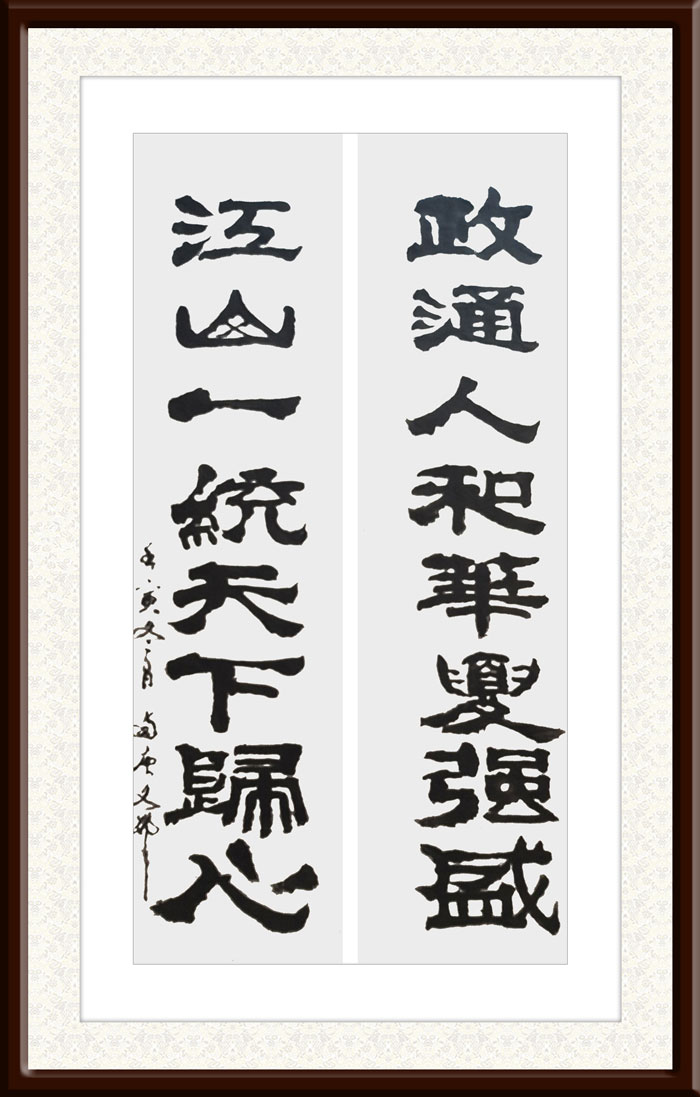 政通人和華夏强盛
江山一統天下歸心
壬寅冬月